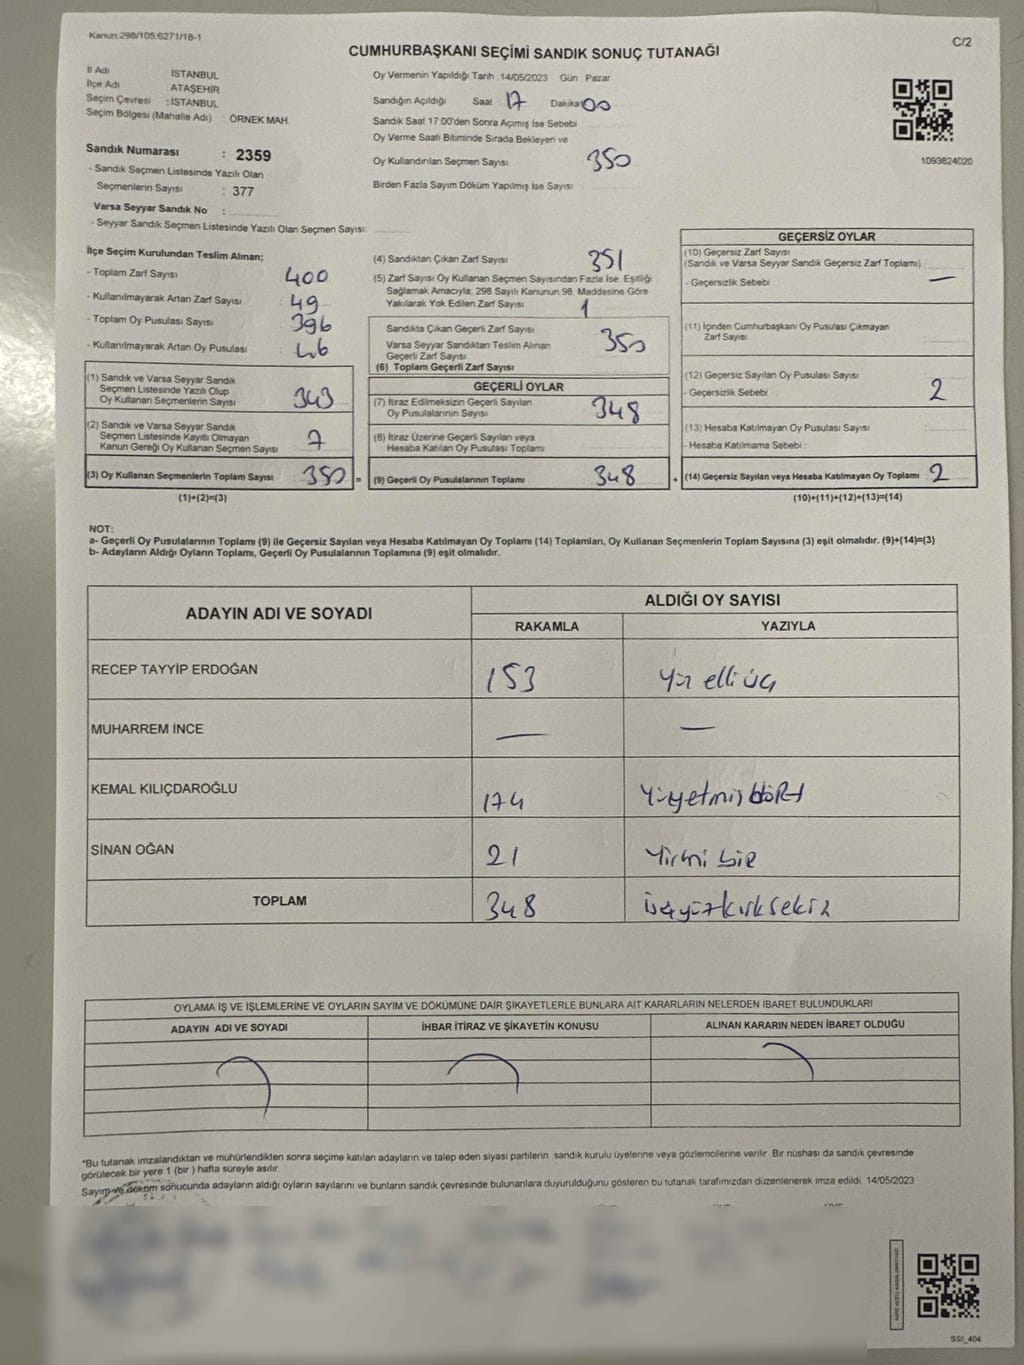 Kanun:298/105;6271/18-1
C/2
CUMHURBAŞKANI SEÇİMİ SANDIK SONUÇ TUTANAĞI
İl Adı İSTANBUL
İlçe Adı ATAŞEHİR
Seçim Çevresi : İSTANBUL
Seçim Bölgesi (Mahalle Adı) : ÖRNEK MAH.
Sandık Numarası : 2359
- Sandık Seçmen Listesinde Yazılı Olan
Seçmenlerin Sayısı : 377
Varsa Seyyar Sandık No :
- Seyyar Sandık Seçmen Listesinde Yazılı Olan Seçmen Sayısı:
Oy Vermenin Yapıldığı Tarih : 14/05/2023 Gün Pazar
Sandığın Açıldığı Saat 17 Dakika 00
Sandık Saat 17:00'den Sonra Açımış İse Sebebi
Oy Verme Saati Bitiminde Sırada Bekleyen ve
Oy Kullandırılan Seçmen Sayısı 350
Birden Fazla Sayım Döküm Yapılmış İse Sayısı
1093824020
İlçe Seçim Kurulundan Teslim Alınan;
- Toplam Zarf Sayısı 400
- Kullanılmayarak Artan Zarf Sayısı 49
- Toplam Oy Pusulası Sayısı 396
- Kullanılmayarak Artan Oy Pusulası 46
(1) Sandık ve Varsa Seyyar Sandık
Seçmen Listesinde Yazılı Olup
Oy Kullanan Seçmenlerin Sayısı 343
(2) Sandık ve Varsa Seyyar Sandık
Seçmen Listesinde Kayıtlı Olmayan
Kanun Gereği Oy Kullanan Seçmen Sayısı 7
(3) Oy Kullanan Seçmenlerin Toplam Sayısı 350 =
(1)+(2)=(3)
(4) Sandıktan Çıkan Zarf Sayısı 351
(5) Zarf Sayısı Oy Kullanan Seçmen Sayısından Fazla İse, Eşitliği
Sağlamak Amacıyla, 298 Sayılı Kanunun 98. Maddesine Göre
Yakılarak Yok Edilen Zarf Sayısı 1
Sandıkta Çıkan Geçerli Zarf Sayısı
Varsa Seyyar Sandıktan Teslim Alınan
Geçerli Zarf Sayısı
(6) Toplam Geçerli Zarf Sayısı 350
GEÇERLİ OYLAR
(7) İtiraz Edilmeksizin Geçerli Sayılan
Oy Pusulalarının Sayısı 348
(8) İtiraz Üzerine Geçerli Sayılan veya
Hesaba Katılan Oy Pusulası Toplamı
(9) Geçerli Oy Pusulalarının Toplamı 348 +
GEÇERSİZ OYLAR
(10) Geçersiz Zarf Sayısı
(Sandık ve Varsa Seyyar Sandık Geçersiz Zarf Toplamı)
- Geçersizlik Sebebi —
(11) İçinden Cumhurbaşkanı Oy Pusulası Çıkmayan
Zarf Sayısı
(12) Geçersiz Sayılan Oy Pusulası Sayısı
- Geçersizlik Sebebi 2
(13) Hesaba Katılmayan Oy Pusulası Sayısı
- Hesaba Katılmama Sebebi
(14) Geçersiz Sayılan veya Hesaba Katılmayan Oy Toplamı 2
(10)+(11)+(12)+(13)=(14)
NOT:
a- Geçerli Oy Pusulalarının Toplamı (9) ile Geçersiz Sayılan veya Hesaba Katılmayan Oy Toplamı (14) Toplamları, Oy Kullanan Seçmenlerin Toplam Sayısına (3) eşit olmalıdır. (9)+(14)=(3)
b- Adayların Aldığı Oyların Toplamı, Geçerli Oy Pusulalarının Toplamına (9) eşit olmalıdır.
ADAYIN ADI VE SOYADI ALDIĞI OY SAYISI
RAKAMLA YAZIYLA
RECEP TAYYİP ERDOĞAN 153 Yüz elli üç
MUHARREM İNCE — —
KEMAL KILIÇDAROĞLU 174 Yüzyetmiş dört
SİNAN OĞAN 21 Yirmi bir
TOPLAM 348 üçyüzkırksekiz
OYLAMA İŞ VE İŞLEMLERİNE VE OYLARIN SAYIM VE DÖKÜMÜNE DAİR ŞİKAYETLERLE BUNLARA AİT KARARLARIN NELERDEN İBARET BULUNDUKLARI
ADAYIN ADI VE SOYADI İHBAR İTİRAZ VE ŞİKAYETİN KONUSU ALINAN KARARIN NEDEN İBARET OLDUĞU
*Bu tutanak imzalandıktan ve mühürlendikten sonra seçime katılan adayların ve talep eden siyasi partilerin sandık kurulu üyelerine veya gözlemcilerine verilir. Bir nüshası da sandık çevresinde
görülecek bir yere 1 (bir ) hafta süreyle asılır.
Sayım ve döküm sonucunda adayların aldığı oyların sayılarını ve bunların sandık çevresinde bulunanlara duyurulduğunu gösteren bu tutanak tarafımızdan düzenlenerek imza edildi. 14/05/2023
SSI_404